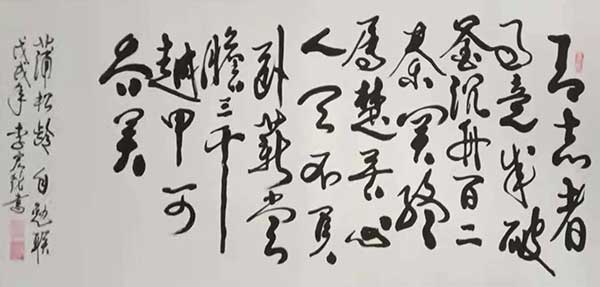 有志者
事竟成破
釜沉舟百二
秦关终
属楚苦心
人天不负
卧薪尝
膽三千
越甲可
吞吴
蒲松龄自勉联
戊戌年李书